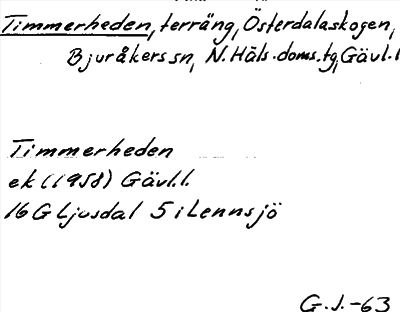 Timmerheden, terräng, Österdalaskogen,
Bjuråkers sn, N. Häls. doms. tg, Gävl. l
Timmerheden
ek (1958) Gävl. l.
16 G Ljusdal 5 i Lennsjö
G. J. -63